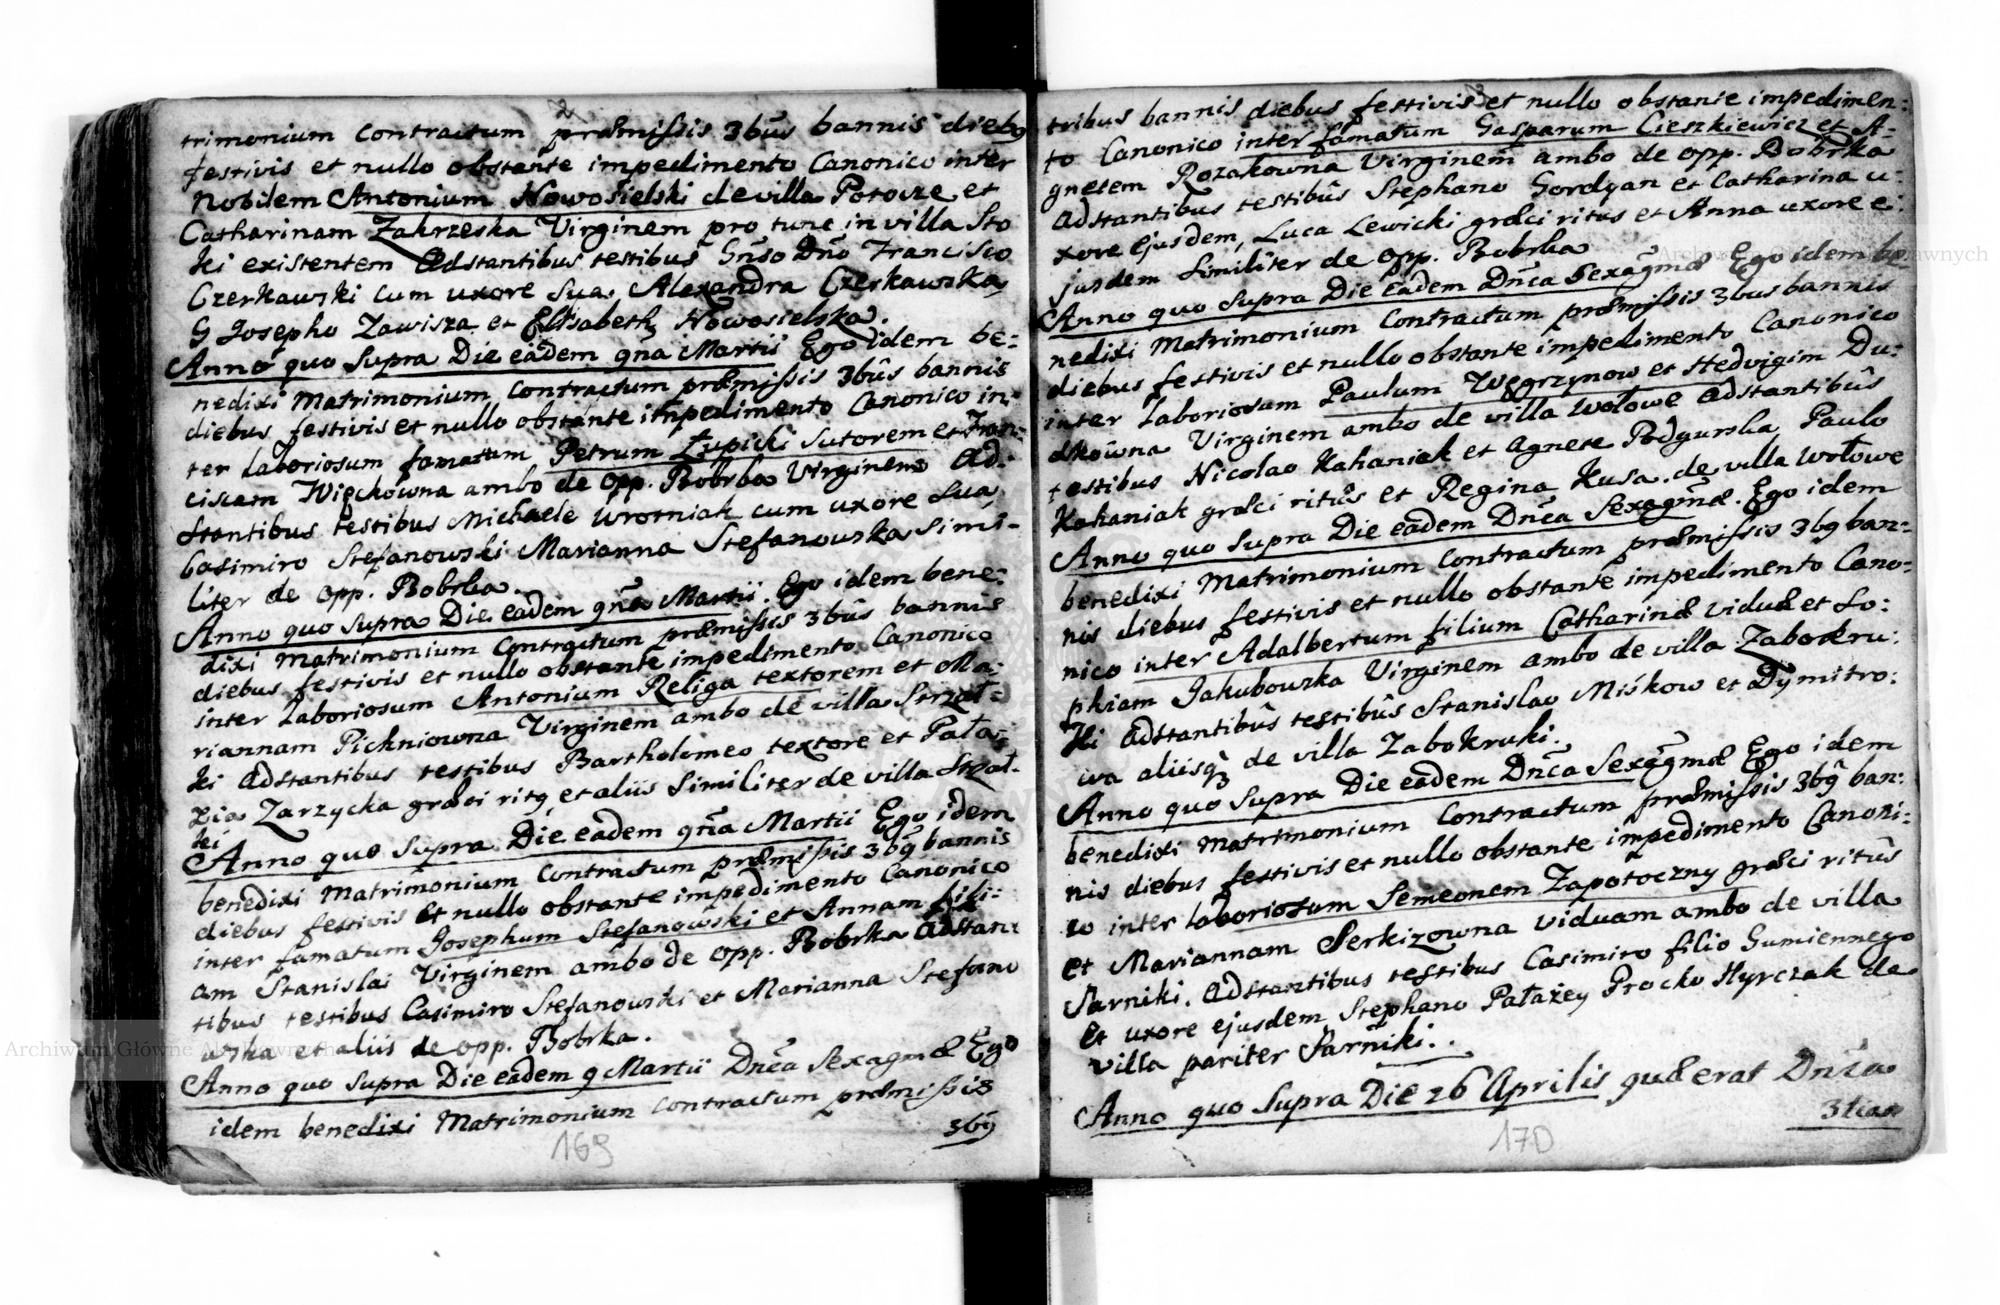 trimonium contractum præmissis 3bûs bannis diebꝫ
festivis et nullo obstante impedimento Canonico inter
Nobilem Antonium Nowosielski de villa Potocze et
Catharinam Zakrzeska Virginem pro tunc in villa Sto
ki existentem Adstantibus testibus Gñso Dño Francisco
Czerkawski cum uxore sua Alexandra Czerkawska
G Josepho Zawisza et Elisabeth Nowosielska.
Anno quo supra Die eadem 9na Martii Ego idem be:
nedixi Matrimonium contractum præmissis 3bûs bannis
diebus festivis et nullo obstante impedimento Canonico in:
ter Laboriosum famatum Petrum Łupicki Sutorem et Fran:
ciscam Więckowna ambo de opp. Bobrka Virginem Ad:
stantibus testibus Michaele Wrotniak cum uxore sua
Casimiro Stefanowski Marianna Stefanowska simi-
liter de opp. Bobrka.
Anno quo supra Die eadem 9na Martii. Ego idem bene:
dixi Matrimonium Contractum præmissis 3bûs bannis
diebus festivis et nullo obstante impedimento Canonico
inter Laboriosum Antonium Religa textorem et Ma:
riannam Pichniowna Virginem ambo de villa Strzał-
ki Adstantibus testibus Bartholomeo textore et Pała:
zia Zarzycka græci ritꝯ et aliis similiter de villa Strzał-
ki
Anno quo supra Die eadem 9na Martii Ego idem
benedixi Matrimonium contractum præmissis 3bꝯ bannis
diebus festivis et nullo obstante impedimento Canonico
inter famatum Josephum Stefanowski et Annam fili:
am Stanislai Virginem ambo de opp. Bobrka Adstan:
tibus testibus Casimiro Stefanowski et Marianna Stefano
wska et aliis de opp. Bobrka.
Anno quo supra Die eadem 9 Martii Dñca Sexagmæ Ego
idem benedixi Matrimonium contractum præmissis
3bꝯ
169
tribus bannis diebus festivis et nullo obstante impedimen:
to Canonico inter famatum Gasparum Cieszkiewicz et A-
gnetem Rozakowna Virginem ambo de opp. Bobrka
Adstantibus testibûs Stephano Gordyan et Catharina u:
xore ejusdem, Luca Lewicki græci ritus et Anna uxore e:
jusdem similiter de opp. Bobrka
Anno quo supra Die eadem Dñca Sexagmæ Ego idem be
nedixi Matrimonium contractum præmissis 3bus bannis
diebus festivis et nullo obstante impedimento Canonico
inter Laboriosum Paulum Węgrzynow et Hedvigim Du:
dkowna Virginem ambo de villa Wołowe Adstantibûs
testibus Nicolao Kahaniak et Agnete Podgurska Paulo
Kahaniak græci ritûs et Regina Kusa de villa Wołowe
Anno quo supra Die eadem Dñca Sexagmæ. Ego idem
benedixi Matrimonium contractum præmissis 3bꝯ ban:
nis diebus festivis et nullo obstante impedimento Cano:
nico inter Adalbertum filium Catharinæ viduæ et So:
phiam Jakubowska Virginem ambo de villa Zabokru:
ki Adstantibûs testibûs Stanislao Miśkow et Dymitro:
wa aliisqꝫ de villa Zabokruki.
Anno quo supra Die eadem Dñca Sexagmæ Ego idem
benedixi Matrimonium contractum præmissis 3bꝯ ban:
nis diebus festivis et nullo obstante impedimento Canoni:
co inter Laboriosum Semeonem Zapotoczny græci ritûs
et Mariannam Serkizowna viduam ambo de villa
Sarniki. Adstantibus testibus Casimiro filio Gumiennego
et uxore ejusdem Stephano Pałażey Procko Hyrczak de
villa pariter Sarniki.
Anno quo supra Die 26 Aprilis quæ erat Dñica
3tia
170
Archiwum Główne Akt Dawnych
Archiwum Główne Akt Dawnych